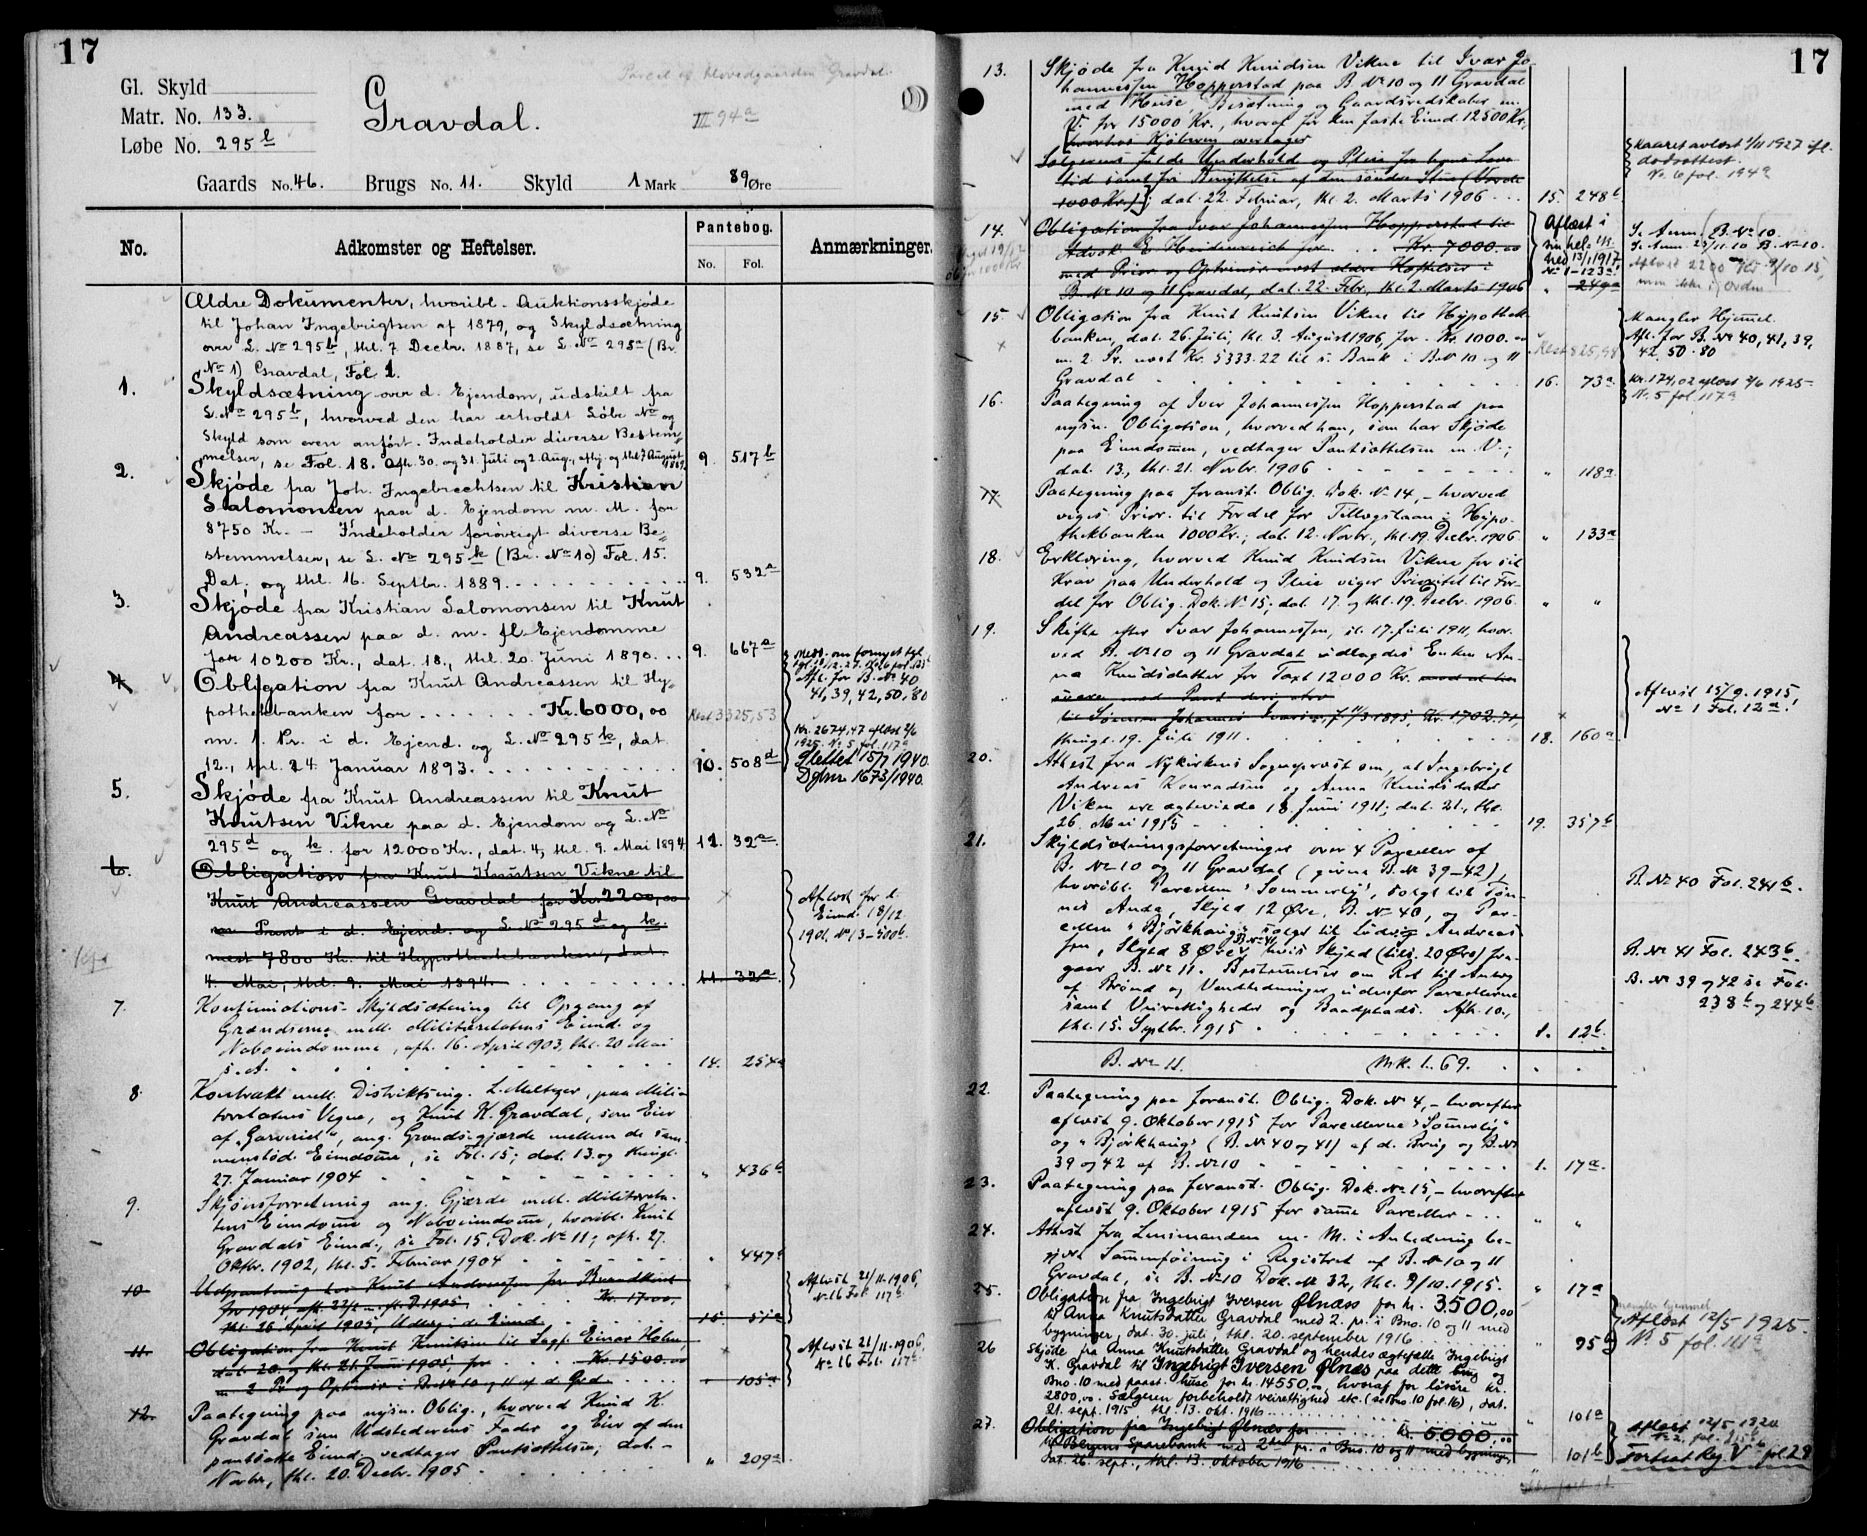 17
Gl. Skyld
Matr. No. 133.
Løbe No. 295 l
Gravdal.
Parcel af Hovedgaarden Gravdal.
III 94a
Gaards No. 46. Brugs No. 11. Skyld 1 Mark 89 Øre
No. Adkomster og Heftelser. Pantebog. Anmærkninger.
No. Fol.
Ældre Dokumenter, hvoribl. Auktionsskjøde
til Johan Ingebrigtsen af 1879, og Skyldsætning
over L. No 295b, thl. 7 Decbr. 1887, se L. No 295a (Br.
No 1) Gravdal, Fol. 1.
1. Skyldsætning over d. Ejendom, udskilt fra
L. No 295b, hvorved den har erholdt Løbe No og
Skyld som oven anført. Indeholder diverse Bestem-
melser, se Fol. 18. Afh. 30. og 31. Juli og 2. Aug., afhj. og thl. 7 August 1889. 9. 517b
2. Skjøde fra Joh. Ingebrechtsen til Kristian
Salomonsen paa d. Ejendom m. M. for
8750 Kr. — Indeholder forøvrigt diverse Be-
stemmelser, se L. No 295k (Br. No 10) Fol. 15.
Dat. og thl. 16. Septbr. 1889. 9. 532a
3. Skjøde fra Kristian Salomonsen til Knut
Andreassen paa d. m. fl. Ejendomme
for 10200 Kr., dat. 18., thl. 20. Juni 1890. 9. 667a
4. Obligation fra Knut Andreassen til Hy-
pothekbanken for Kr. 6000,00
m. 1. Pr. i d. Ejend. og L. No 295k, dat.
12., thl. 24. Januar 1893. 10. 508d
Afl. for B. No 40
41, 39, 42, 50, 80
Rest 3325,53
Kr. 2674,47 aflæst 2/6
1925. No 5 fol. 117a
Slettet 15/7 1940.
Dgbnr 1673/1940.
5. Skjøde fra Knut Andreassen til Knut
Knutsen Vikne paa d. Ejendom og L. No
295d og k. for 12000 Kr., dat. 4., thl. 9. Mai 1894 11. 32a
6. Obligation fra Knut Knutsen Vikne til
Knut Andreassen Gravdal for Kr. 2200,00
m. Pant i d. Ejend. og L. No 295d og k.
næst 7800 Kr. til Hypothekbanken, dat.
4. Mai, thl. 9. Mai 1894. 11. 32a
Aflæst for d.
Eiend. 18/12
1901. No 13 - 500b.
7. Konfirmations-Skyldsætning til Opgang af
Grændserne mell. Militæretatens Eiend. og
Naboeiendomme, afh. 16. April 1903, thl. 20 Mai
s. A. 14. 254a
8. Kontrakt mell. Distriktsing. L. Meltzer, paa Mili-
tæretatens Vegne, og Knut K. Gravdal, som Eier
af "Garveriet", ang. Grændsegjærde mellem de sam-
menstød. Eiendomme, se Fol. 15; dat. 13. og thingl.
27. Januar 1904 " 436b
9. Skjønsforretning ang. Gjærde mell. Militæreta-
tens Eiendomme og Naboeiendomme, hvoribl. Knut
Gravdals Eiend., se Fol. 15, Dok. No 11; afh. 27.
Oktbr. 1902, thl. 5. Februar 1904 " 447b
10. Udpantning hos Knut Andreassen for Brandkont.
for 1904 afh. 22/2 Kr. 17.00.
thl. 26 April 1905, Udlæg i d. Eiend. 15. 51a
Aflæst 21/11. 1906,
No 16 Fol. 117a.
11. Obligation fra Knut Knutsen til Sagf. Einar Holm,
dat. 20. og thl. 21. Juni 1905, for Kr. 1500.00
m. 2 Pr. og Optrinsr. i B. No 10 og 11 af d. Grd. " 105a
Aflæst 21/11. 1906
No 16 Fol. 117a.
12. Paategning paa nysn. Oblig., hvorved Knud K.
Gravdal som Udstederens Fader og Eier af den
pantsatte Eiend. vedtager Pantsættelsen; dat. -
Novbr., thl. 20. Decbr. 1905 " 209a
17
13. Skjøde fra Knud Knudsen Vikne til Ivar Jo-
hannessen Hopperstad paa B. No 10 og 11 Gravdal
med Huse, Besætning og Gaardsredskaber m.
V. for 15000 Kr., hvoraf for den faste Eiend. 12500 Kr.,
hvorhos Kjøberen overtager
Sælgerens fulde Underhold og Pleie for hans Leve-
tid samt fri Benyttelse af den søndre Stue (Værdi
1000 Kr.); dat. 22. Februar, thl. 2. Marts 1906 15. 248b
Kaaret avlæst 1/11 1927 ifl.
dødsattest.
No. 6 fol. 194a
14. Obligation fra Ivar Johannessen Hopperstad til
Advok. E. Heidenreich for Kr. 7000.00
med Prior. og Optrinsr. næst ældre Heftelser i
B. No 10 og 11 Gravdal, dat. 22. Febr., thl. 2. Marts 1906 " 249a
Aflæst i
sin hel-
hed 13/1 1917
No 1 - 123a!
Se Anm. B. No 10.
Se Anm. 25/11. 10 B. No 10.
15. Obligation fra Knut Knutsen Vikne til Hypothek-
banken, dat. 26. Juli, thl. 3. August 1906, for Kr. 1000.00
m. 2. Pr. næst Kr. 5333.22 til s. Bank i B. No 10 og 11
Gravdal 16. 73a.
Rest 825,98
Mangler Hjemmel.
Afl. for B. No 40, 41, 39,
42, 50. 80
Kr. 174,02 aflæst 2/6 1925-
No. 5 fol. 117a
16. Paategning af Iver Johannessen Hopperstad paa
nysn. Obligation, hvorved han, som har Skjøde
paa Eiendommen, vedtager Pantsættelsen m. V.;
dat. 13., thl. 21. Novbr. 1906 " 118a.
17. Paategning paa foranst. Oblig. Dok. No 14, - hvorved
viges Prior. til Fordel for Tillægslaan i Hypo-
thekbanken 1000 Kr.; dat. 12. Novbr., thl. 19. Decbr. 1906 " 133a
18. Erklæring, hvorved Knud Knudsen Vikne for sit
Krav paa Underhold og Pleie viger Prioritet til For-
del for Oblig. Dok. No 15; dat. 17. og thl. 19. Decbr. 1906. " "
19. Skifte efter Ivar Johannessen, sl. 17. Juli 1911, hvor-
ved B. No 10 og 11 Gravdal udlagdes Enken An-
na Knudsdatter for Taxt 12000 Kr.
til Sønnen Johannes Ivarsen, f. 11/3 1895, Kr. 1702.71,
thingl. 19. Juli 1911. 18. 160a
Aflæst 15/9. 1915
No 1 Fol. 12a!
20. Attest fra Nykirkens Sogneprest om, at Ingebrigt
Andreas Konradsen og Anna Knudsdatter
Viken ere ægteviede 18. Juni 1911; dat. 21., thl.
26. Mai 1915 19. 357b
21. Skyldsætningsforretninger over 4 Parceller af
B. No 10 og 11 Gravdal (givne B. No 39-42),
hvoribl. Parcellen "Sommerly", solgt til Tøn-
nes Anda, Skyld 12 Øre, B. No 40, og Par-
cellen "Bjørkhaug" solgt til Ludvig Andreas-
sen, Skyld 8 Øre, B. No 41, hvis Skyld (tils. 20 Øre) fra-
gaar B. No 11. Bestemmelser om Ret til Anlæg
af Brønd og Vandledninger udenfor Parcellerne
samt Veirettigheder og Baadplads. Afh. 10.,
thl. 15. Septbr. 1915 1. 12b.
B. No 40 Fol. 241b.
B. No 41 Fol. 243b.
B. No 39 og 42 se Fol.
238b og 244b
B. No 11. Mk. 1.69.
22. Paategning paa foranst. Oblig. Dok. No 4, - hvorefter
aflæst 9. Oktober 1915 for Parcellerne "Sommerly"
og "Bjørkhaug" (B. No 40 og 41) af d. Brug og B. No
39 og 42 af B. No 10 1. 17a.
23. Paategning paa foranst. Oblig. Dok. No 15, - hvorefter
aflæst 9. Oktober 1915 for samme Parceller " "
24. Attest fra Lensmanden m. M. i Anledning be-
gjært Sammenføining i Registret af B. No 10 og 11
Gravdal, se B. No 10 Dok. No 32, thl. 9/10. 1915. " 17a
25. Obligation fra Ingebrigt Iversen Ølnæss for kr. 3500.00
til Anna Knutsdatter Gravdal med 2. pr. i Bno. 10 og 11 med
bygninger, dat. 30. juli, thl. 20. september 1916 " 95b
mangler hjemmel
Aflæst 12/5 1925.
No. 5 fol. 111a
26 Skjøde fra Anna Knutsdatter Gravdal og hendes ægtefælle Ingebrigt
K. Gravdal til Ingebrigt Iversen Ølnæs paa dette brug og
Bno. 10 med paast. huse for kr. 14550,00 hvoraf for løsøre kr.
2800,00. Sælgeren forbeholdt veirettighed etc. (se Bno. 10 fol. 16), dat.
21. sept. 1915 thl. 13. okt. 1916 " 101a
27. Obligation fra Ingebrigt Ølnæs for kr. 5000.00
til Bergens Sparebank med 2den pr. i Bno. 10 og 11 med bygninger,
dat. 26. sept., thl. 13. oktober 1916 " 101b
Fortsat Reg. V fol. 29